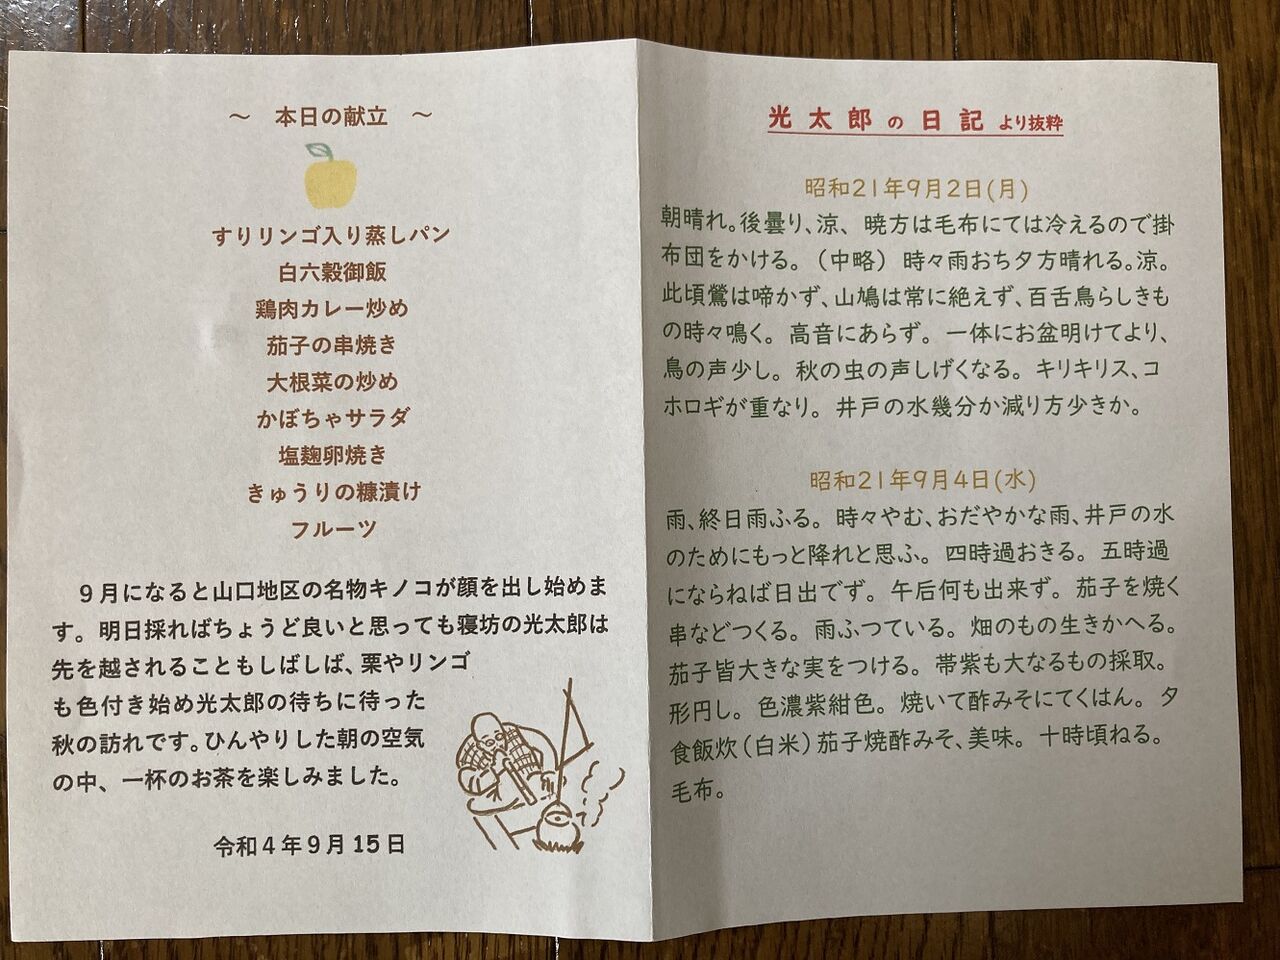 ～　本日の献立　～
すりリンゴ入り蒸しパン
白六穀御飯
鶏肉カレー炒め
茄子の串焼き
大根菜の炒め
かぼちゃサラダ
塩麹卵焼き
きゅうりの糠漬け
フルーツ
９月になると山口地区の名物キノコが顔を出し始めま
す。明日採ればちょうど良いと思っても寝坊の光太郎は
先を越されることもしばしば、栗やリンゴ
も色付き始め光太郎の待ちに待った
秋の訪れです。ひんやりした朝の空気
の中、一杯のお茶を楽しみました。
令和４年９月15日
光太郎の日記より抜粋
昭和21年9月2日(月)
朝晴れ。後曇り、涼、暁方は毛布にては冷えるので掛
布団をかける。（中略）時々雨おち夕方晴れる。涼。
此頃鶯は啼かず、山鳩は常に絶えず、百舌鳥らしきも
の時々鳴く。高音にあらず。一体にお盆明けてより、
鳥の声少し。秋の虫の声しげくなる。キリキリス、コ
ホロギが重なり。井戸の水幾分か減り方少きか。
昭和21年9月4日(水)
雨、終日雨ふる。時々やむ、おだやかな雨、井戸の水
のためにもっと降れと思ふ。四時過おきる。五時過
にならねば日出でず。午后何も出来ず。茄子を焼く
串などつくる。雨ふつている。畑のもの生きかへる。
茄子皆大きな実をつける。帯紫も大なるもの採取。
形円し。色濃紫紺色。焼いて酢みそにてくはん。夕
食飯炊（白米）茄子焼酢みそ、美味。十時頃ねる。
毛布。